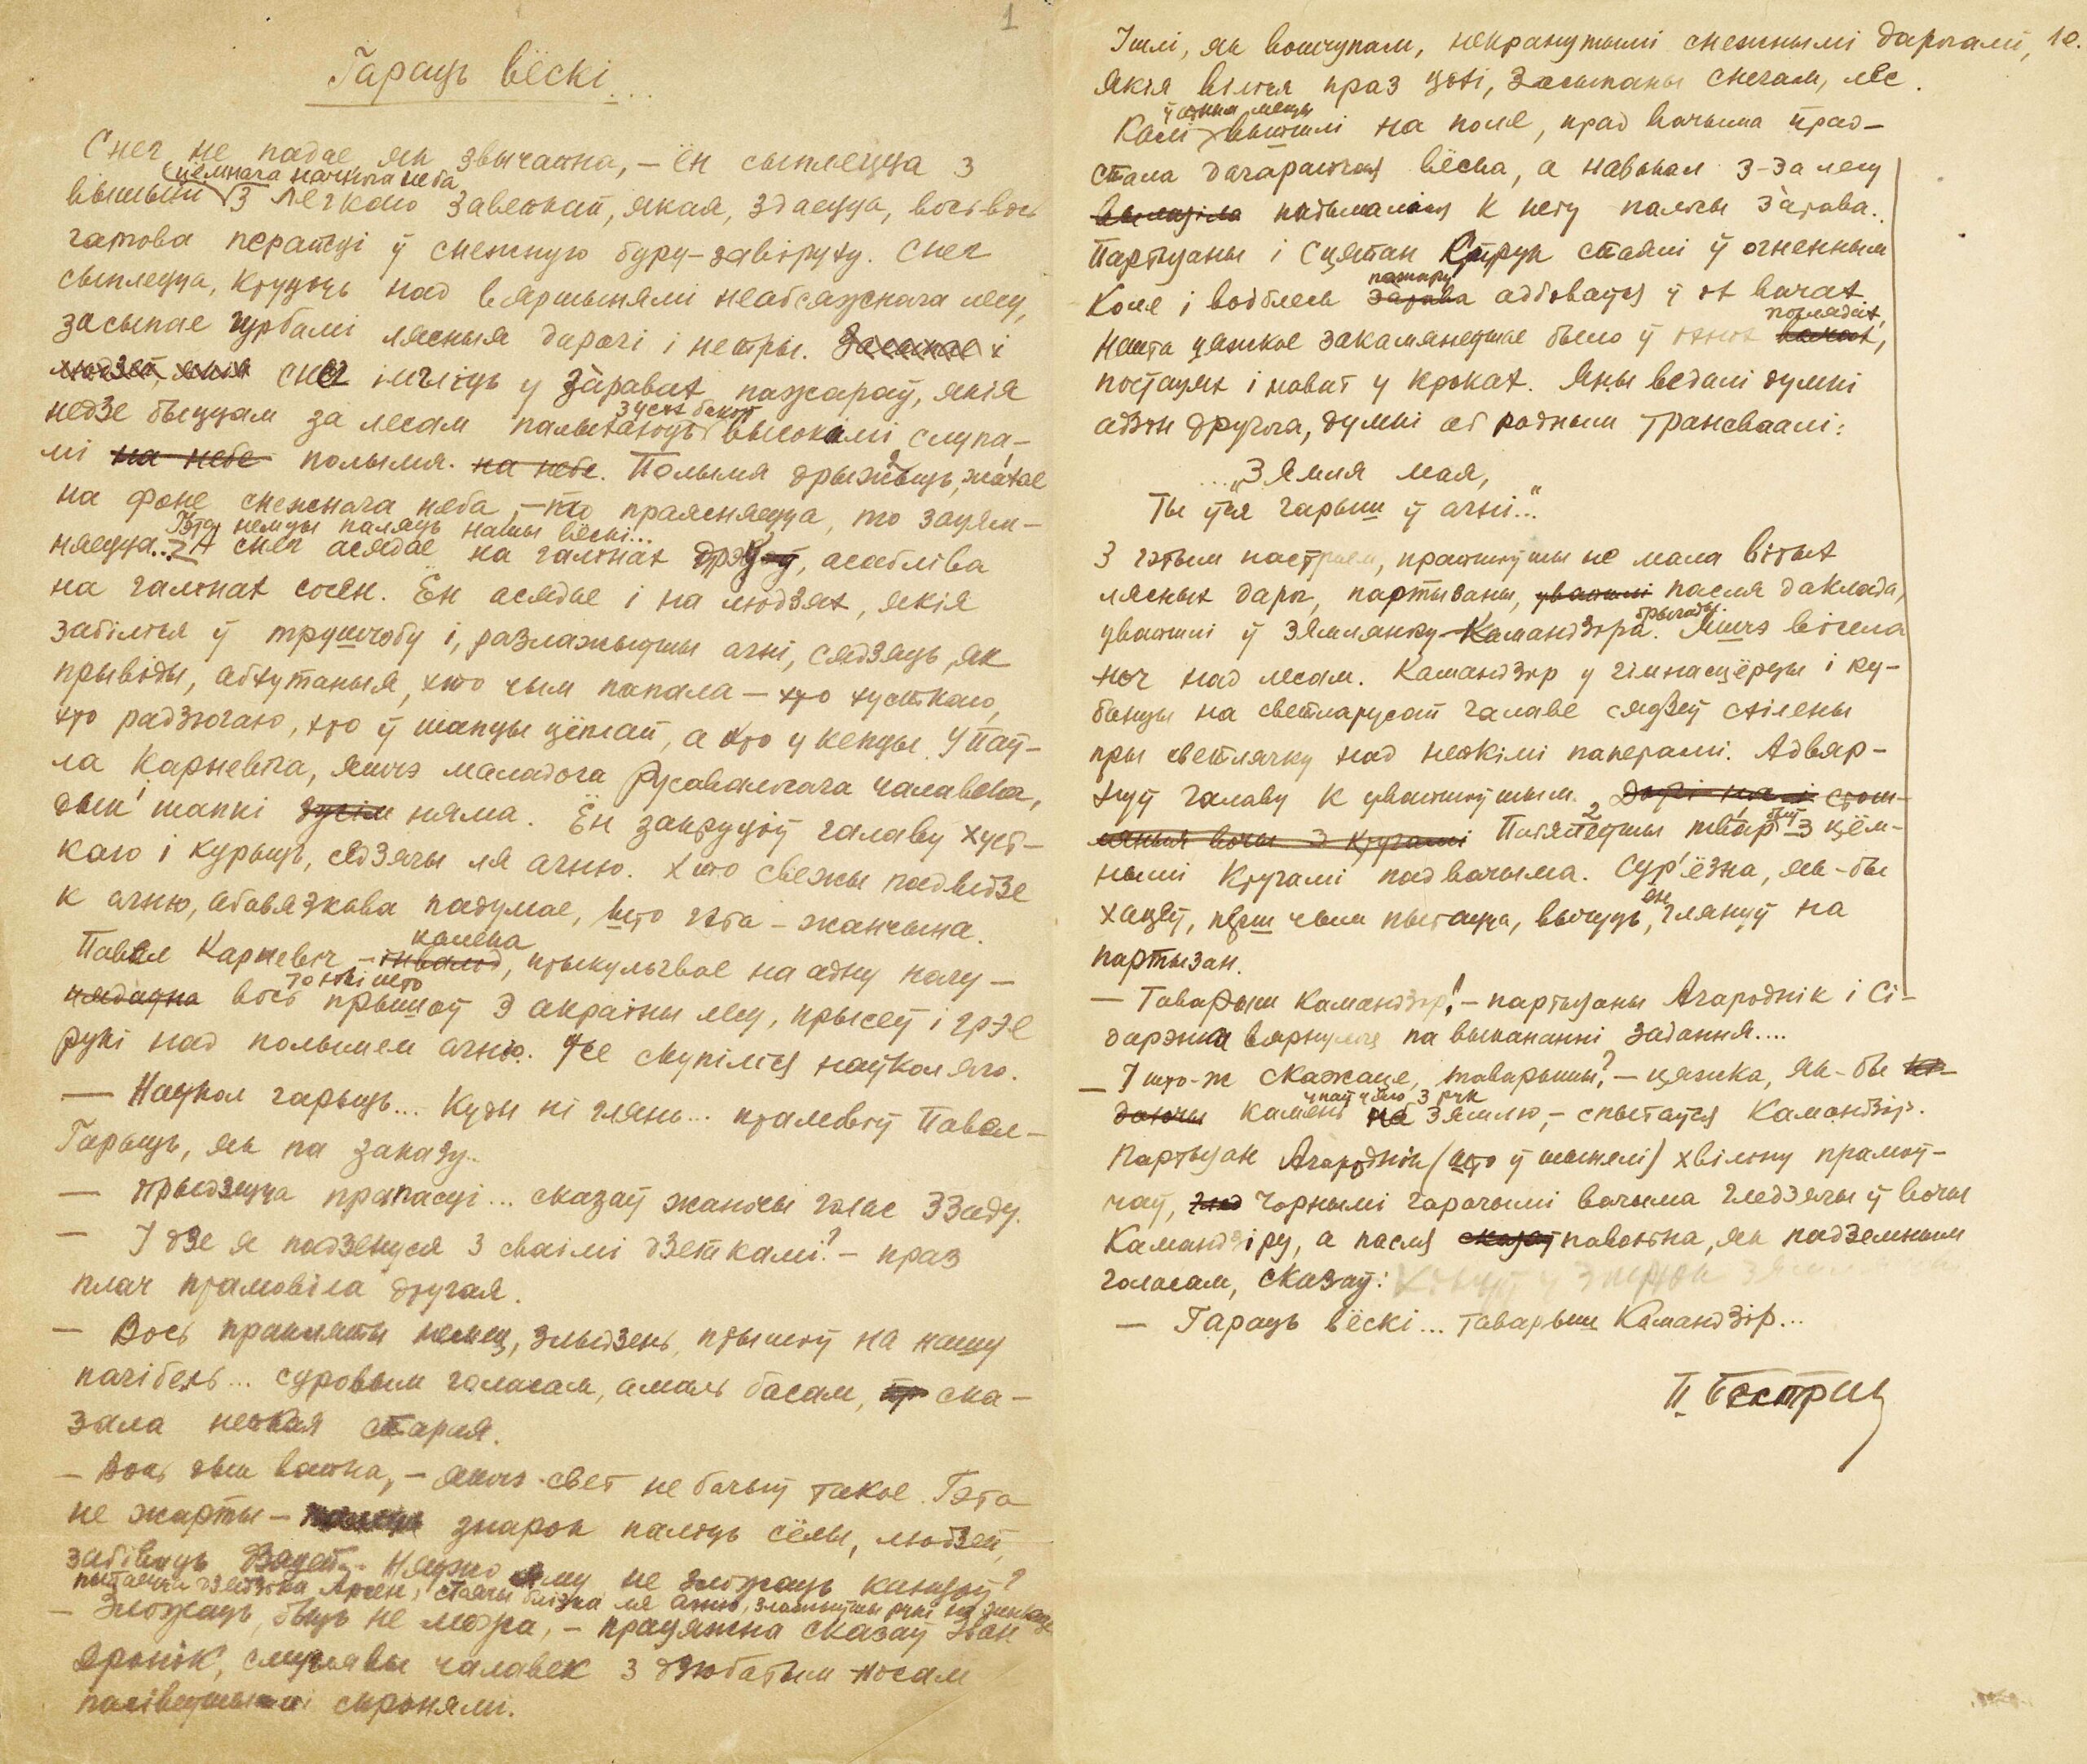 1
Гараць вёскі...
Снег не падае як звычайна, – ён сыплецца з
цёмнага начнога неба
вышыні з лёгкаю завейкай, якая, здаецца, вось вось
гатова перайсці ў снежную буру-завіруху. Снег
сыплецца, кружыць над вяршынямі неабсяжнага лесу,
засыпае гурбамі лясныя дарогі і нетры. Засыпае і
людзей, якія снег імчіць у заравах пажараў, якія
недзе быццам за лесам палыхаюць высокімі слупа-
з усіх бакоў
мі на небе полымя. на небе. Полымя дрыжыць, жыхае
на фоне снежнага неба, – то праясняецца, то зацям-
Гэта немцы паляць нашы вёскі...
няецца... А снег асядае на галінах дрэў, асабліва
на галінах сосен. Ён асядае і на людзях, якія
забіліся ў трушчобу і, разлажыўшы агні, сядзяць, як
прывіды, абхутаныя, хто чым папала – хто хусткаю,
хто радзюгаю, хто ў шапцы цёплай, а хто у кепцы. У Паў-
ла Карневіча, яшчэ маладога русавалосага чалавека,
дык і шапкі зусім няма. Ён закруціў галаву хуст-
каю і курыць, седзячы ля агню. Хто свежы падыйдзе
к агню, абавязкова падумае, што гэта – жанчына.
калека
Павел Карневіч – інвалід, прыкульгвае на адну нагу –
толькі што
нядаўна вось прышоў з акраіны лесу, прысеў і грэе
рукі над полымем агню. Усе скупіліся наўкол яго.
– Наўкол гарыць... Куды ні глянь... прамовіў Павел –
Гарыць, як па заказу..
– Прыдзецца прапасці... сказаў жаночы голас ззаду.
– І дзе я падзенуся з сваімі дзеткамі? – праз
плач прамовіла другая.
– Вось пракляты немец, злыдзень, прышоў на нашу
пагібель... суровым голасам, амаль басам, пр ска-
зала нейкая старая.
– Вось дык вайна, – яшчэ свет не бачыў такое. Гэта
не жарты – знарок паляць сёлы, людзей,
забіваць дзяцей. Няўжо яму не зложаць канцоў?
пытаецца Арсен, стоячы блізка ля агню, злажыўшы рукі на
– Зложаць, быць не можа, – працяжна сказаў
Дронік, смуглявы чалавек з дзюбатым носам
пасівеўшымі скронямі.
Ішлі, як вошчупам, некранутымі снежнымі дарогамі, 10.
якія віліся праз ціхі, засыпаны снегам, лес.
ў адным месцы
Калі вышлі на поле, прад вачыма прад-
стала дагараючая вёска, а навокал з-за лесу
вылазіла падымаліся к небу палосы зарава..
Партызаны і Сцяпан Струк стаялі ў огненным
пажару
коле і водблеск зарава адбіваўся ў іх вачах
поглядах,
нешта цяжкое закамянеўшае было ў іхніх вачах,
постацях і нават у кроках. Яны ведалі думкі
адзін другога, думкі аб родным Трансваалі:
..."Зямля мая,
Ты ўся гарыш ў агні..."
З гэтым настроем, прайшоўшы не мала вітых
лясных дарог, партызаны, увайшлі пасля даклада,
брыгады.
увайшлі ў зямлянку Камандзіра. Яшчэ вісела
ноч над лесам. Камандзір у гімнасцёрцы і ку-
банцы на светларусай галаве сядзеў схілены
пры светлячку над нейкімі паперамі. Адвяр-
нуў галаву к увайшоўшым.
вочы з кругамі Пацямнеўшы твар з цём-
нымі кругамі пад вачыма. Сур'ёзна, як-бы
ён
хацеў, перш чым пытацца, вычуць, глянуў на
партызан.
– Таварыш камандзір! – партызаны Агароднік і Сі-
дарэнка вярнуліся па выкананні задання....
– І што-ж скажаце, таварышы? – цяжка, як-бы кі-
упаў у яго з рук
даючы камень на зямлю, – спытаўся Камандзір.
Партызан Агароднік (што ў шынялі) хвіліну прамоў-
чаў, гляд чорнымі гарачымі вачыма гледзячы ў вочы
Камандзіру, а пасля сказаў павольна, як падземным
голасам, сказаў:
– Гараць вёскі... таварыш Камандзір...
П. Бястрыц